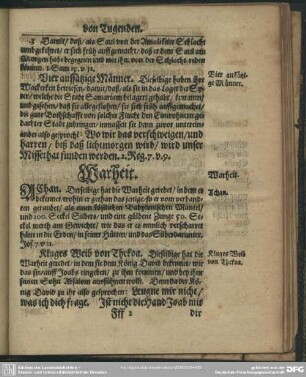 von Tugenden.
Damit/ daß/ als Saul von der Amalekiter Schlacht
und
Morgen habe begegnen und mit ihm von der Schlacht reden
können. 1. Sam. 15. v. 12.
Vier aussätzige Männer. Dieselbige haben ihre
Wackerkeit bewiesen/ damit/ daß/ als sie in das Lager der Sy-
rer/ welche die Stadt Samariam belagert gehabt/
und gesehen/ daß sie alle geflohen/ sie sich früh auffgemachet/
die gute Bothschafft von solcher Flucht den Einwohnern ge-
dachter Stadt zubringen/ inmassen sie denn zuvor unterein-
ander also gesprochen: Wo wir das verschweigen/ und
harren/ biß daß licht morgen wird/ wird unser
Missethat funden werden. 2. Reg. 7. v. 9.
Vier aussätzi-
ge Männer.
Warheit.
Warheit.
AChan. Derselbige hat die Warheit geredet/ in dem er
bekennet/ wohin er gethan das jenige/ so er vom verbann-
ten geraubet/ als einen köstlichen Babylonischen Mantel/
und 200. Seckel Silbers/ und eine güldene Zunge 50. Se-
ckel werth am Gewichte/ wie das er es nemlich verscharret
hätte in die Erden/ in seiner Hütten/ und das Silber darunter.
Jos. 7. v. 21.
Achan.
Kluges Weib von Thekoa. Dieselbige hat die
Warheit geredet/ in dem sie dem König David bekennet/ wie
das sie/ auff Joabs eingeben/ zu ihm kommen/ und bey ihm
seinen Sohn Absalom außsöhnen wollen. Denn da der Kö-
nig David zu ihr also gesprochen: Leugne mir nicht/
was ich dich frage. Ist nicht die Hand Joab mit
Kluges Weib
von Thekoa.
Fff 2
dir